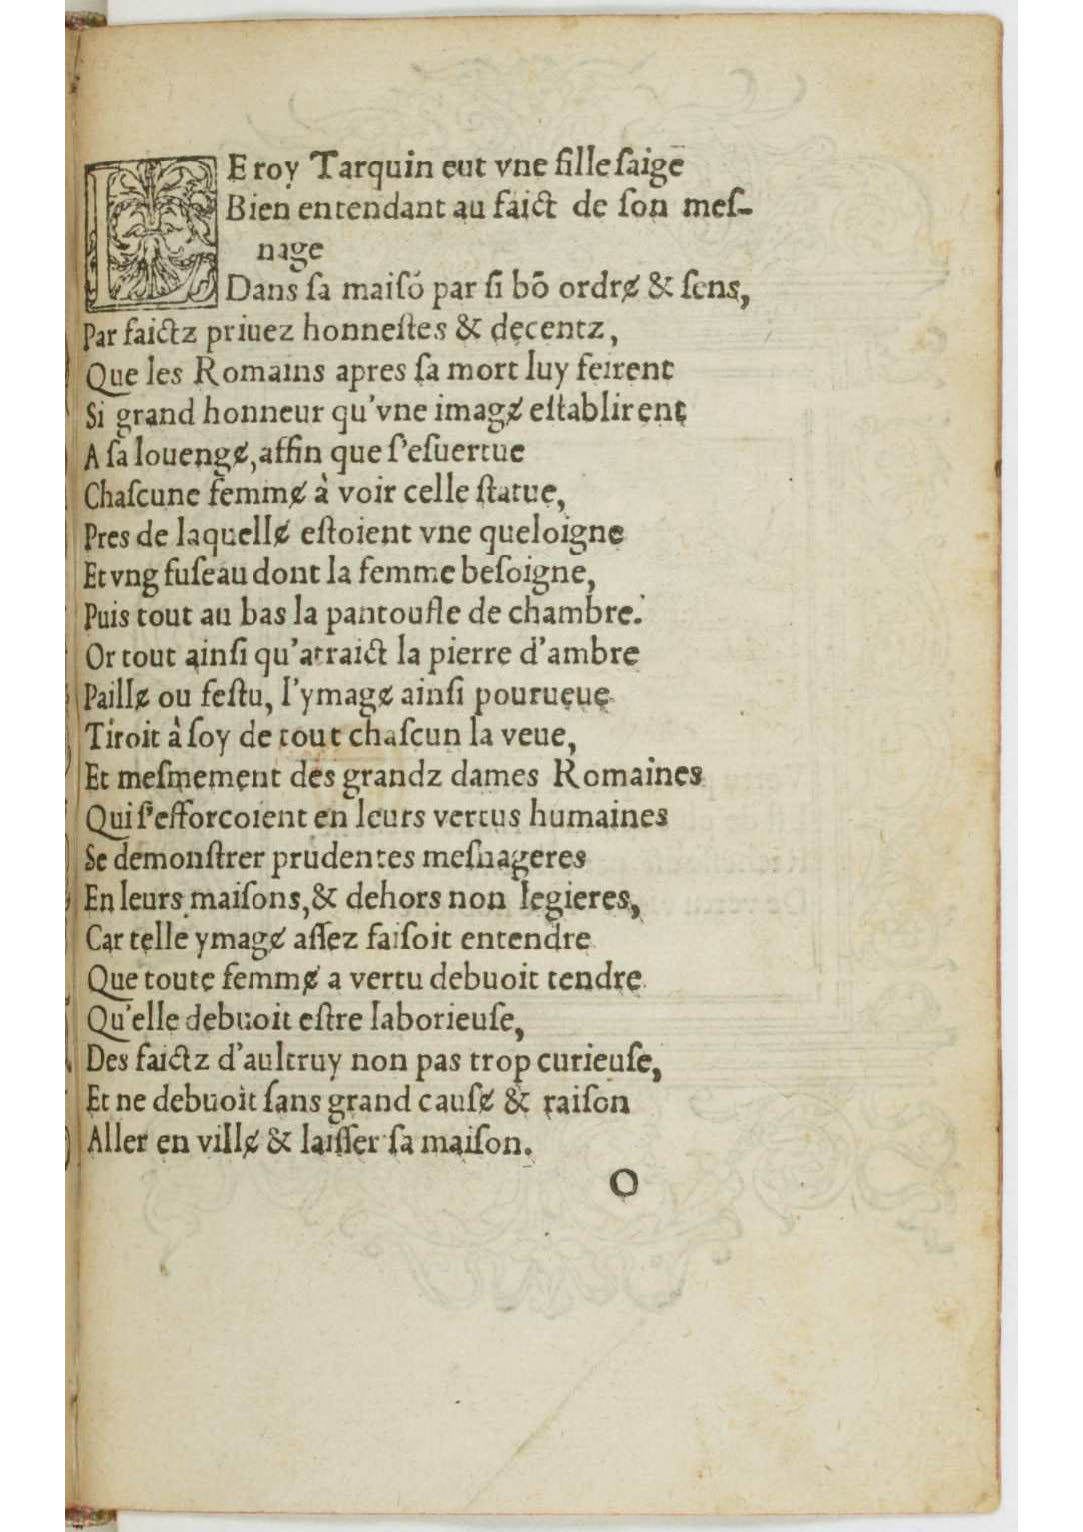 LE roy Tarquin eut vne fille ſaige
Bien entendant au faict de ſon meſ-
nage
Dans ſa maiſõ par ſi bõ ordrɇ & ſens,
Par faictz priuez honneſtes & decentz,
Que les Romains apres ſa mort luy feirent
Si grand honneur qu'vne imagɇ eſtablirent
A ſa louengɇ, affin que ſ'eſuertue
Chaſcune femmɇ à voir celle ſtatue,
Pres de laquellɇ eſtoient vne queloigne
Et vng fuſeau dont la femme beſoigne,
Puis tout au bas la pantoufle de chambre.
Or tout ainſi qu'atraict la pierre d'ambre
Paillɇ ou feſtu, l'ymagɇ ainſi pourueue
Tiroit à ſoy de tout chaſcun la veue,
Et meſmement des grandz dames Romaines
Qui ſ'efforcoient en leurs vertus humaines
Se demonſtrer prudentes meſnageres
En leurs maiſons, & dehors non legieres,
Car telle ymagɇ aſſez faiſoit entendre
Que toute femmɇ a vertu debuoit tendre
Qu'elle debuoit eſtre laborieuſe,
Des faictz d'aultruy non pas trop curieuſe,
Et ne debuoit ſans grand cauſɇ & raiſon
Aller en villɇ & laiſſer ſa maiſon.
O